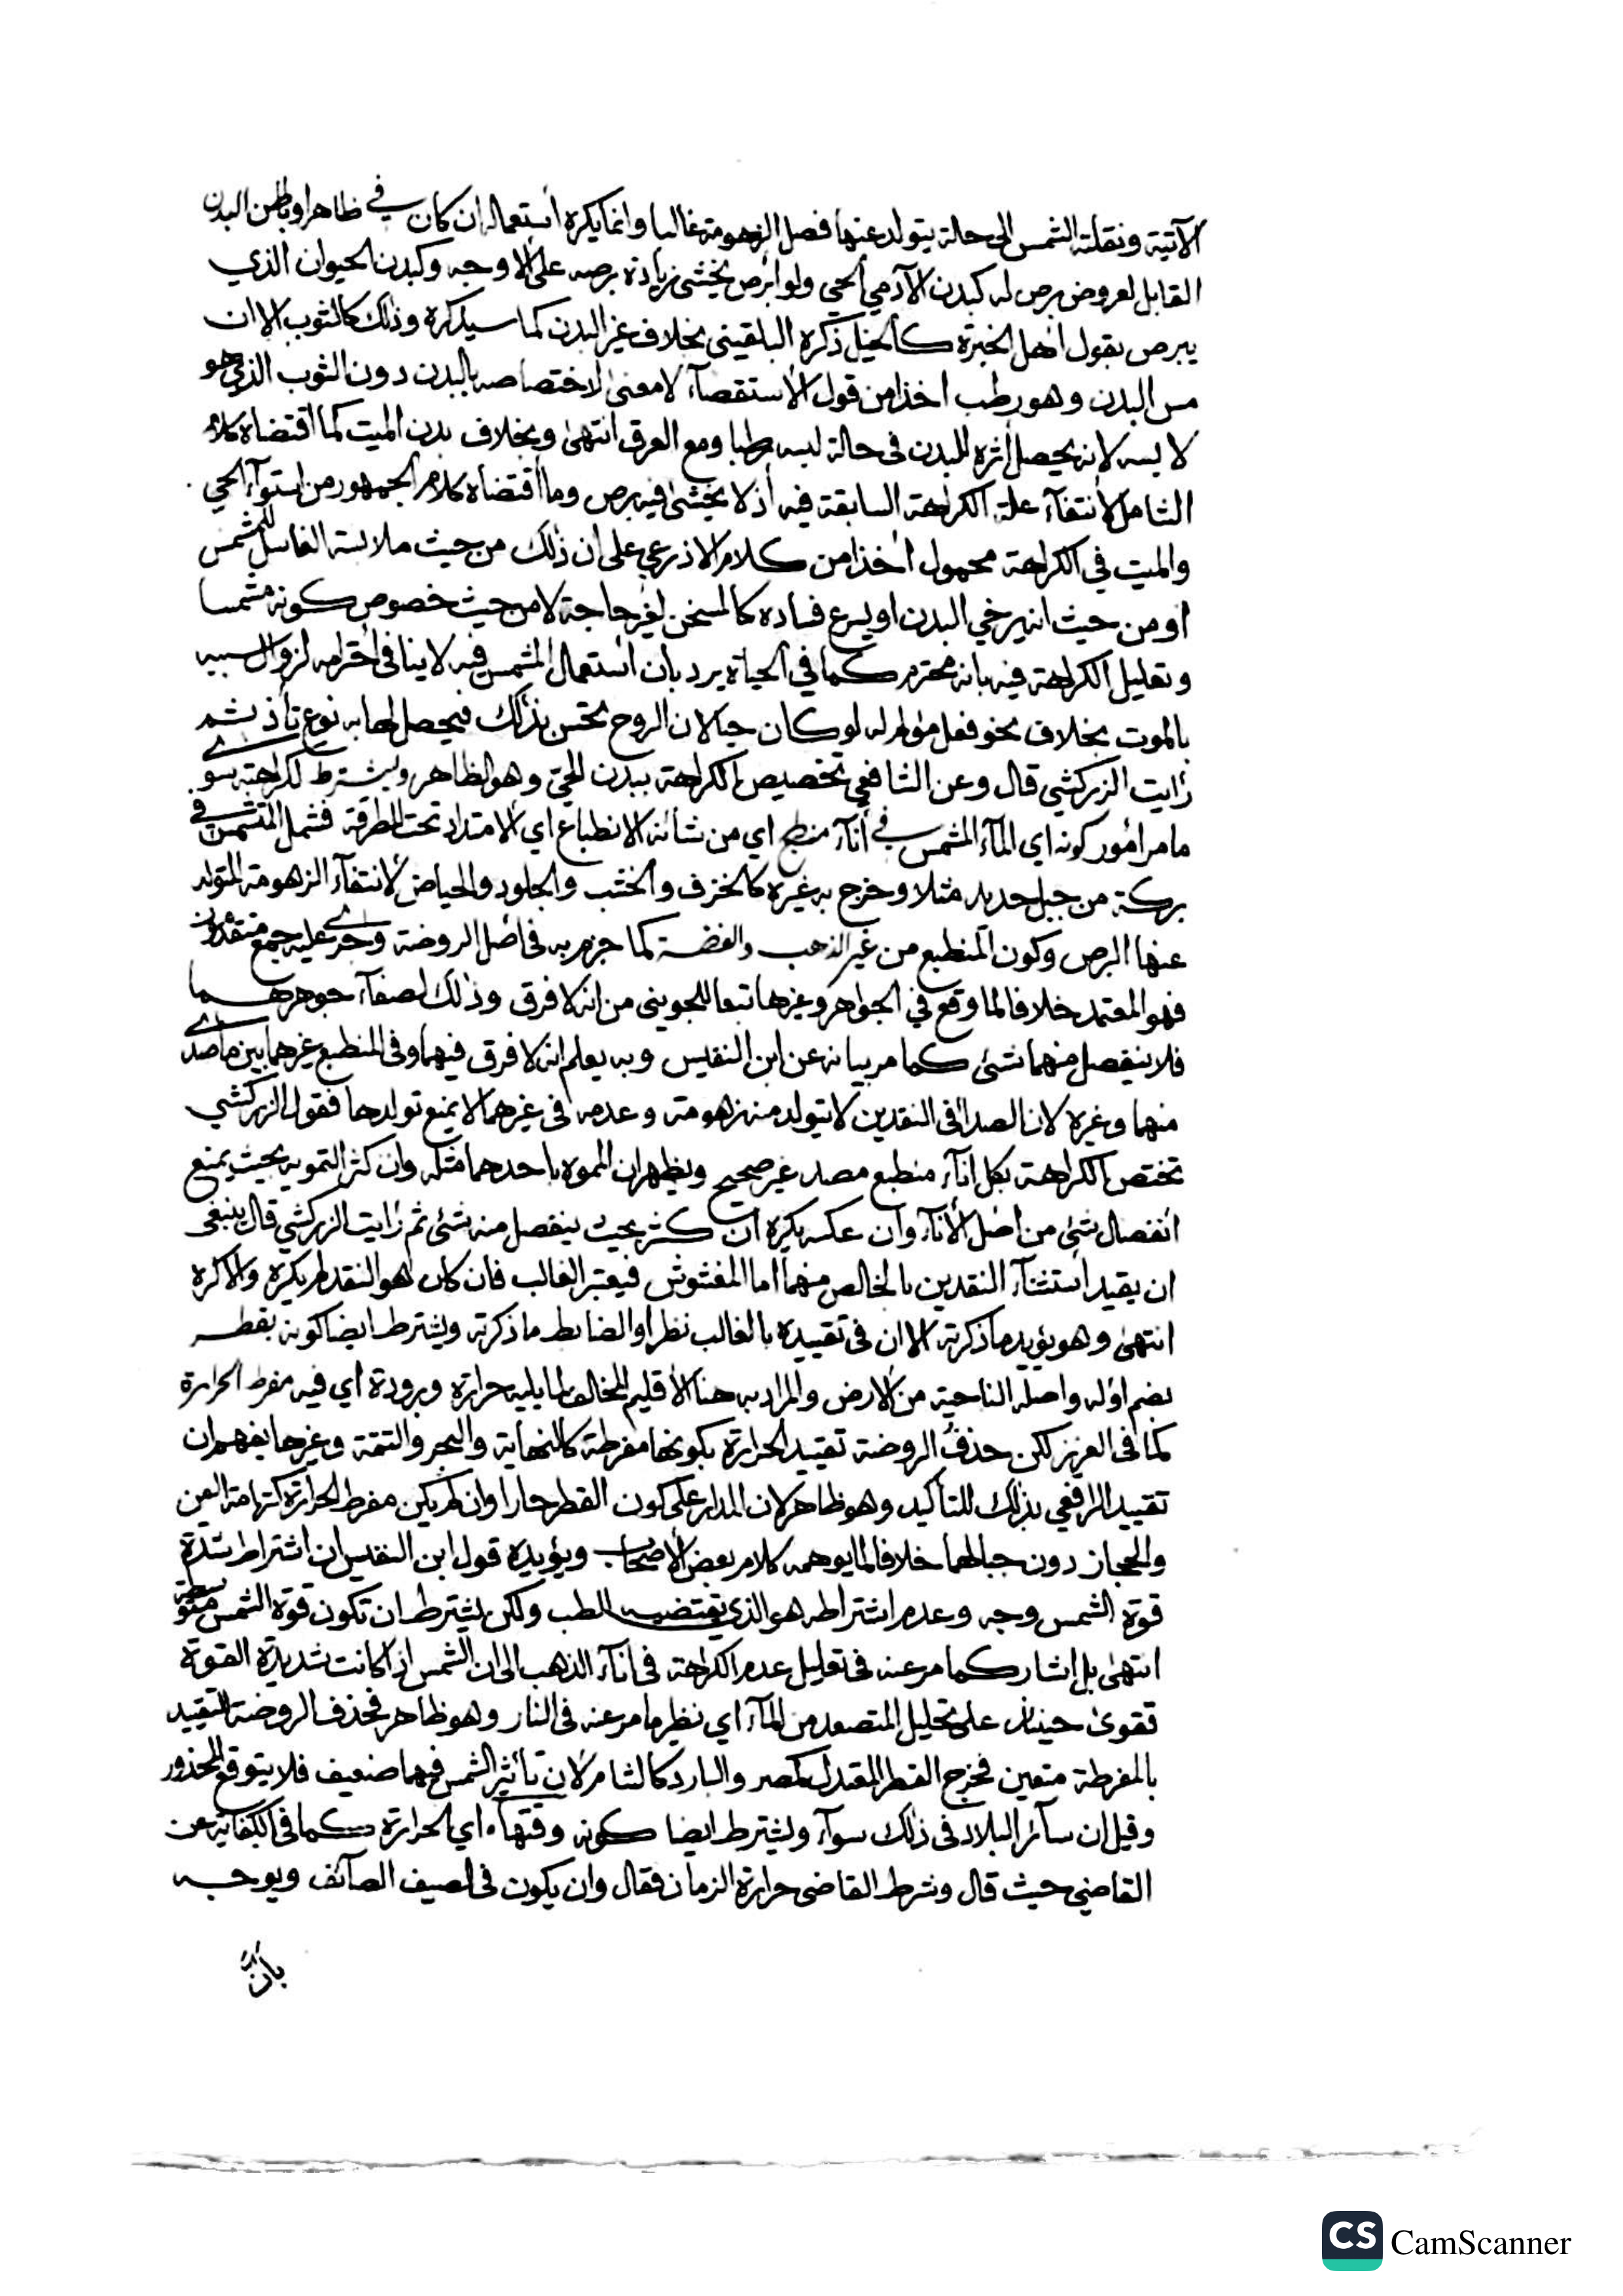 الآتية ونقلته الشمس الى حالة يتولد عنها فصل الزهومة غالبا وانما يكره استعماله ان كان في ظاهر او باطن البدن
القابل لعروض برص له كبدن الآدمي الحي ولو ابرص يخشى زيادة برصه على الاوجه وكبدن الحيوان الذي
يبرص بقول اهل الخبرة كالخيل ذكره البلقيني بخلاف غير البدن كما سيذكره وذلك كالثوب الا ان
مس البدن وهو رطب اخذا من قول الاستقصآء لا معنى لاختصاصه بالبدن دون الثوب الذي هو
لابسه لانه يحصل اثره للبدن في حالة لبسه رطبا ومع العرق انتهى وبخلاف بدن الميت كما اقتضاه كلام
الشامل لانتفآء علة الكراهة السابقة فيه اذ لا يخشى فيه برص وما اقتضاه كلام الجمهور من استوآء الحي
والميت في الكراهة محمول اخذا من كلام الاذرعي على ان ذلك من حيث ملابسة الغاسل للمشمس
او من حيث انه يرخي البدن او يسرع فساده كالمسخن لغير حاجة لا من حيث خصوص كونه مشمسا
وتعليل الكراهة فيه بانه محترم كما في الحياة يرد بان استعمال المشمس فيه لا ينافي احترامه لزوال سببه
بالموت بخلاف نحو فعل مؤلم له لو كان حيا لان الروح تحس بذلك فيحصل لها به نوع تأذ ثم
رايت الزركشي قال وعن الشافعي تخصيص الكراهة ببدن الحي وهو الظاهر ويشترط لكراهته سوى
ما مر امور كونه اي المآء المشمس في انآء منطبع اي من شانه الانطباع اي الامتداد تحت المطرقة فشمل المتشمس في
بركة من جبل حديد مثلا وخرج به غيره كالخزف والخشب والجلود والحياض لانتفآء الزهومة المتولد
عنها البرص وكون المنطبع من غير الذهب والفضة كما جزم به في اصل الروضة وجرى عليه جمع متقدمون
فهو المعتمد خلافا لما وقع في الجواهر وغيرها تبعا للجويني من انه لا فرق وذلك لصفآء جوهرهما
فلا ينفصل منهما شئ كما مر بيانه عن ابن النفيس وبه يعلم انه لا فرق فيهما وفي المنطبع غيرهما بين ما صدى
منها وغيره لان الصدا في النقدين لا يتولد منه زهومة وعدمه في غيرهما لا يمنع تولدها فقول الزركشي
تختص الكراهة بكل انآء منطبع مصد غير صحيح ويظهر ان المموه باحدهما مثله وان كثر التمويه بحيث يمنع
انفصال شئ من اصل الانآء وان عكسه يكره ان كثر بحيث ينفصل منه شئ ثم رايت الزركشي قال ينبغي
ان يقيد استثنآء النقدين بالخالص منهما اما المغشوش فيعتبر الغالب فان كان هو النقد لم يكره والا كره
انتهى وهو يؤيد ما ذكرته الا ان في تقييده بالغالب نظرا والضابط ما ذكرته ويشترط ايضا كونه بقطر
بضم اوله واصله الناحية من الارض والمراد به هنا الاقليم المخالف لما يليه حرارة وبرودة اي فيه مفرط الحرارة
كما في العزيز لكن حذف الروضة تقييد الحرارة بكونها مفرطة كالنهاية والبحر والتتمة وغيرها يفهم ان
تقييد الرافعي بذلك للتأكيد وهو ظاهر لان المدار على كون القطر حارا وان لم يكن مفرط الحرارة كتهامة اليمن
والحجاز دون جبالهما خلافا لما يوهمه كلام بعض الاصحاب ويؤيده قول ابن النفيس ان اشتراط شدة
قوة الشمس وجه وعدم اشتراطه هو الذي يقتضيه الطب ولكن يشترط ان تكون قوة الشمس متوسطة
انتهى بل اشار كما مر عنه في تعليل عدم الكراهة في انآء الذهب الى ان الشمس اذا كانت شديدة القوة
تقوى حينئذ على تحليل المتصعد من المآء اي نظير ما مر عنه في النار وهو ظاهر فحذف الروضة التقييد
بالمفرطة متعين فخرج القطر المعتدل كمصر والبارد كالشام لان تأثير الشمس فيهما ضعيف فلا يتوقع المحذور
وقيل ان سآئر البلاد في ذلك سوآء ويشترط ايضا كونه وقتها اي الحرارة كما في الكفاية عن
القاضي حيث قال وشرط القاضي حرارة الزمان فقال وان يكون في الصيف الصآئف ويوجه
بان
CS CamScanner